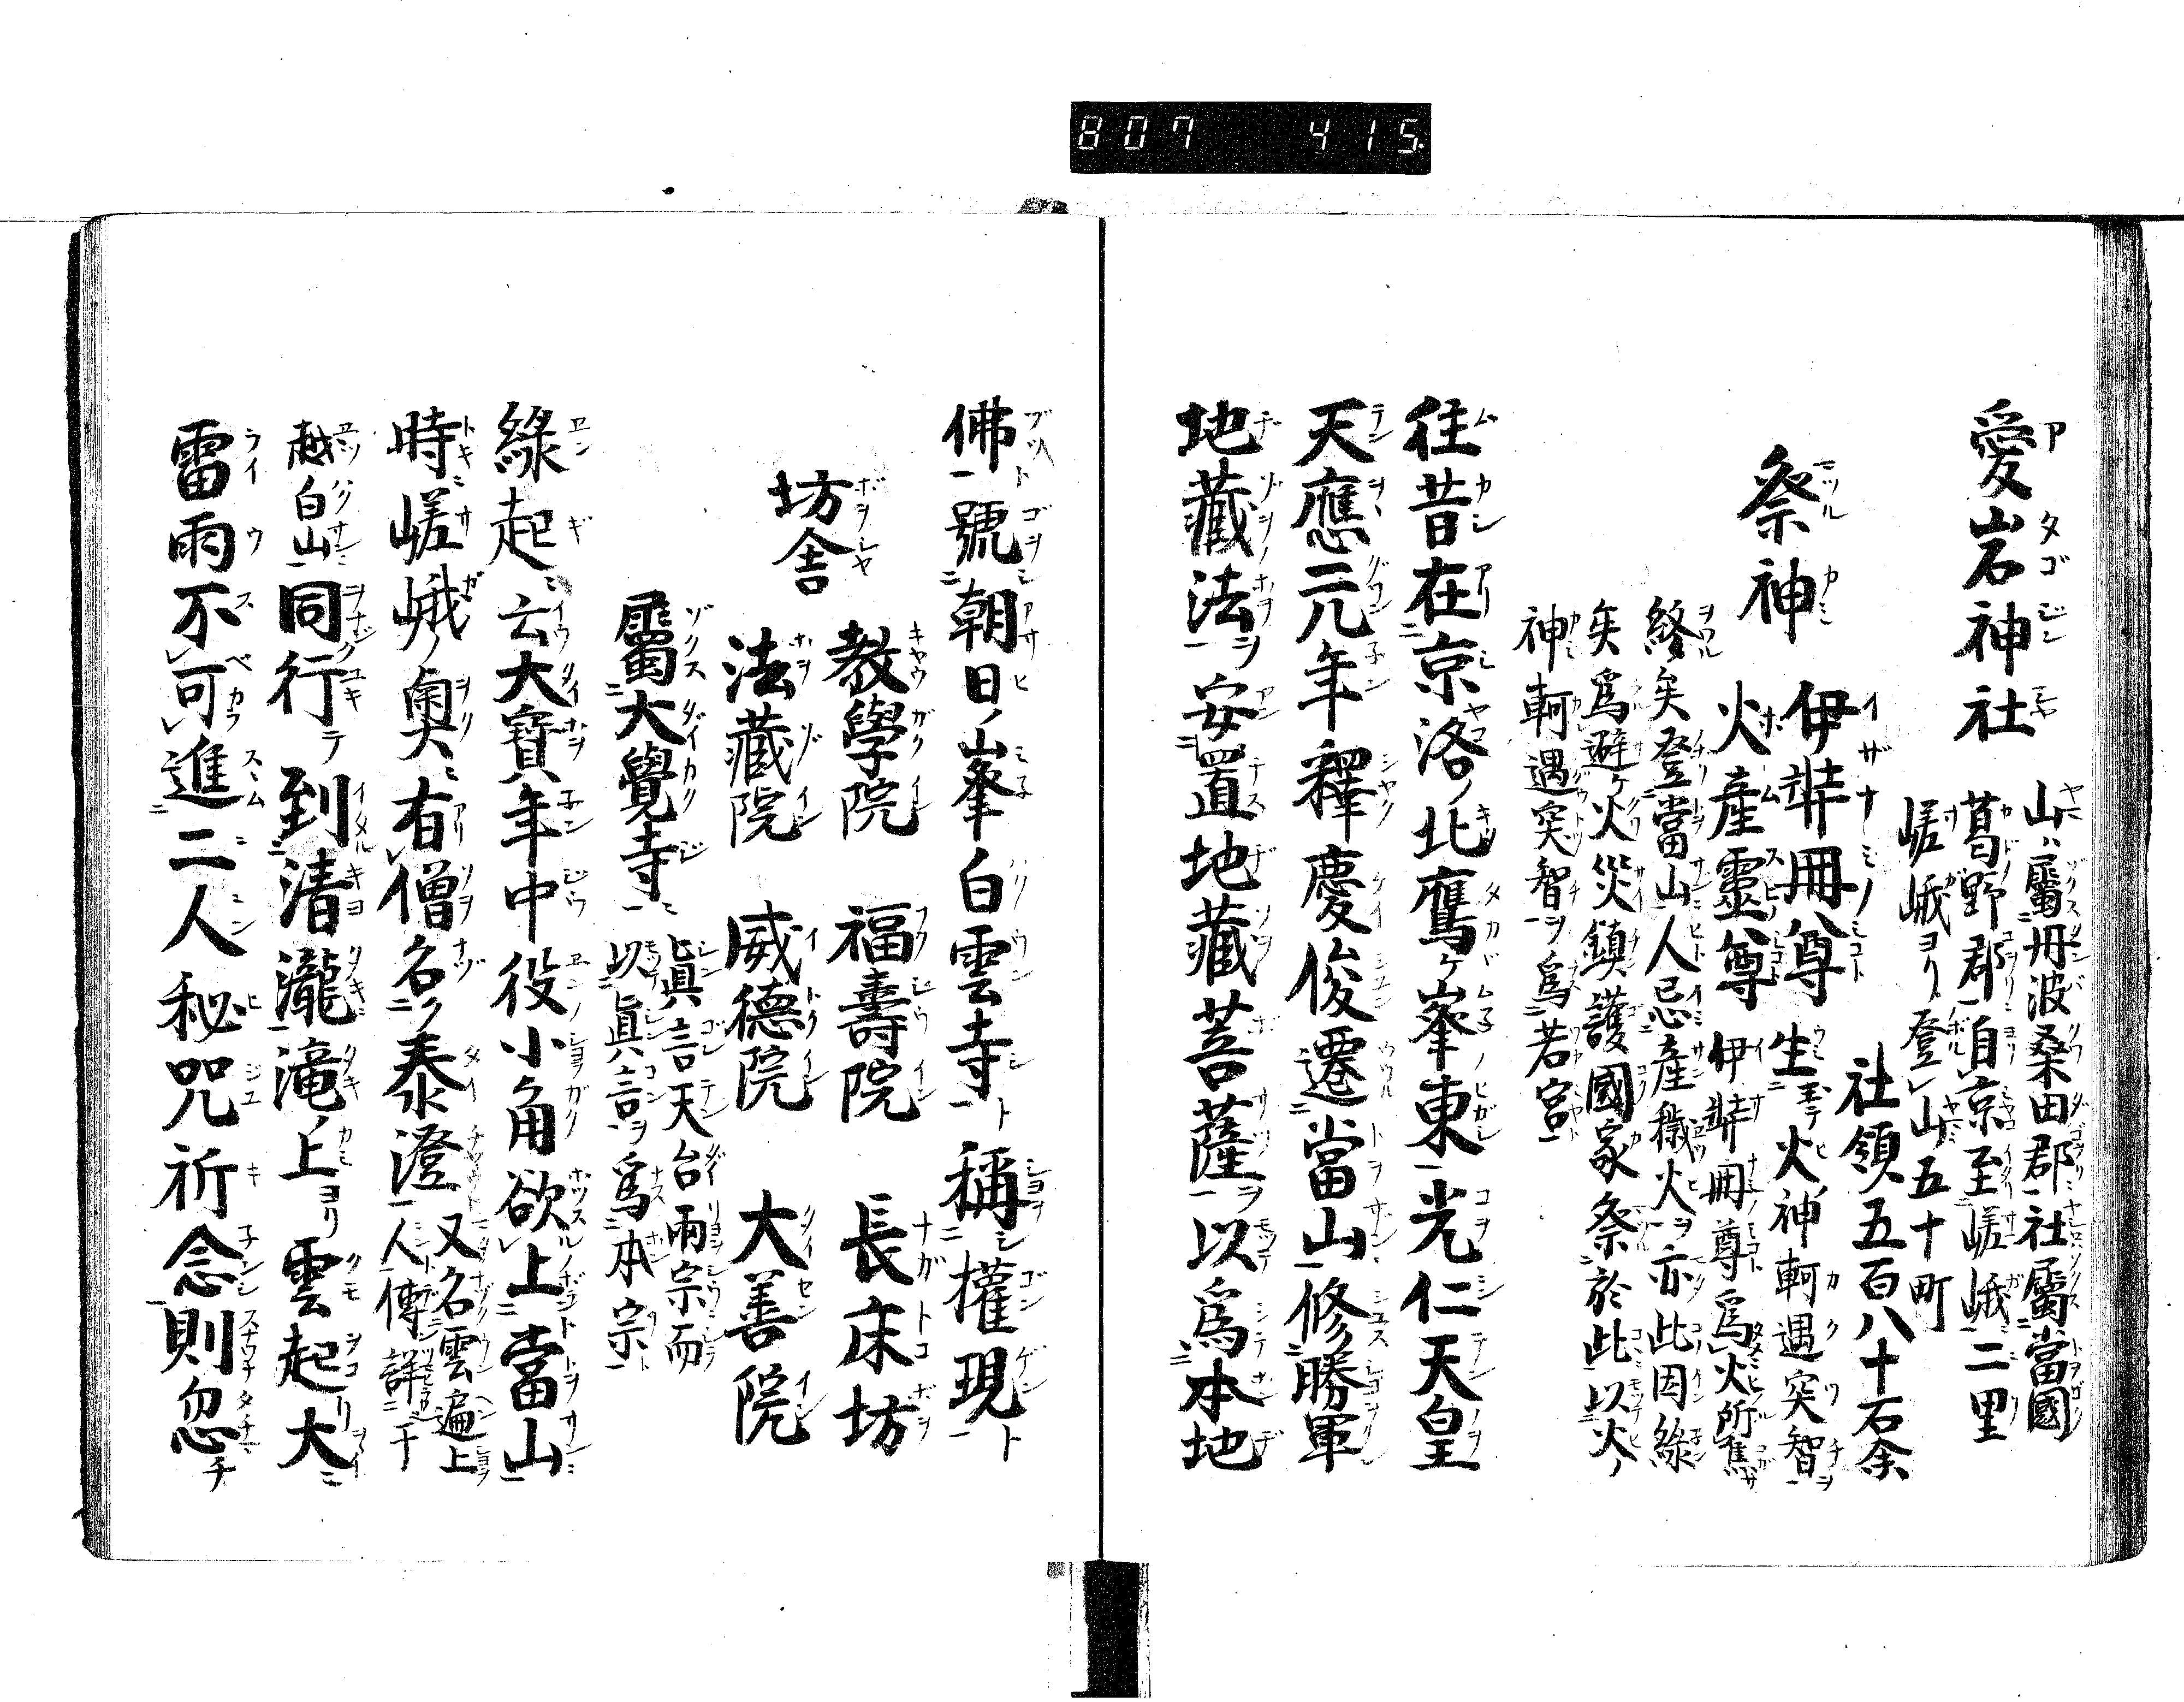 807 415
愛宕神社
山ハ屬丹波桑田郡社屬當國
葛野郡自京至嵯峨二里
嵯峨ヨリ登山五十町
社領五百八十石余
祭神
伊弉冊尊
生玉テ火神軻遇突智ヲ
火産靈尊
伊弉冊尊爲火所焦
終矣登當山人忌産穢火ヲ亦此因縁
矣爲避ケ火災鎮護國家祭於此以火ノ
神軻遇突智ヲ爲若宮
往昔在京洛ノ北鷹ケ峯東光仁天皇
天應元年釋慶俊遷當山修勝軍
地藏法ヲ安置地藏菩薩ヲ以爲本地
佛號朝日ノ峯白雲寺ト稱權現ト
坊舎
教學院 福壽院 長床坊
法藏院 威德院 大善院
屬大覺寺ニ
眞言天台兩宗而
以眞言ヲ爲本宗ト
縁起ニ云大寶年中役小角欲上當山
時嵯峨ノ奥ニ有僧名ク泰澄
又名雲遍上
人傳詳于
越白山同行テ到清瀧滝ノ上ヨリ雲起大
雷雨不可進二人秘咒祈念則忽チ